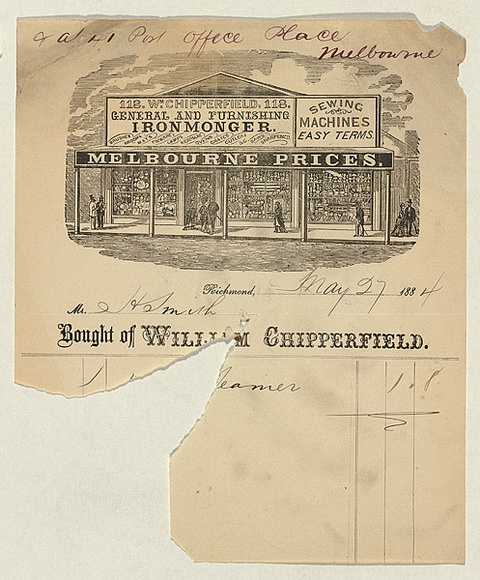 & at 41 Post Office Place
Melbourne
118. Wm. CHIPPERFIELD. 118.
GENERAL AND FURNISHING
IRONMONGER.
SEWING
MACHINES
EASY TERMS.
MELBOURNE PRICES.
Richmond, May 27 1884
Mr. H Smith
Bought of WILLIAM CHIPPERFIELD.
1 eamer 1. 8